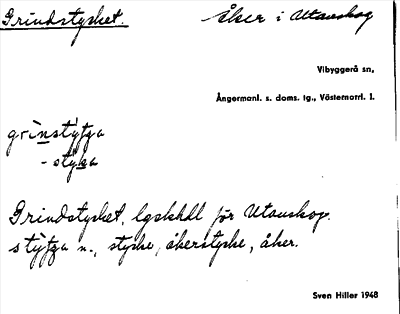 Grindstycket. Åker i Utanskog
Vibyggerå sn,
Ångermanl. s. doms. tg., Västernorrl. l.
grinstytja
- styka
Grindstycket, lgskkdl för Utanskog.
n., stycke, åkerstycke, åker.
Sven Hiller 1948